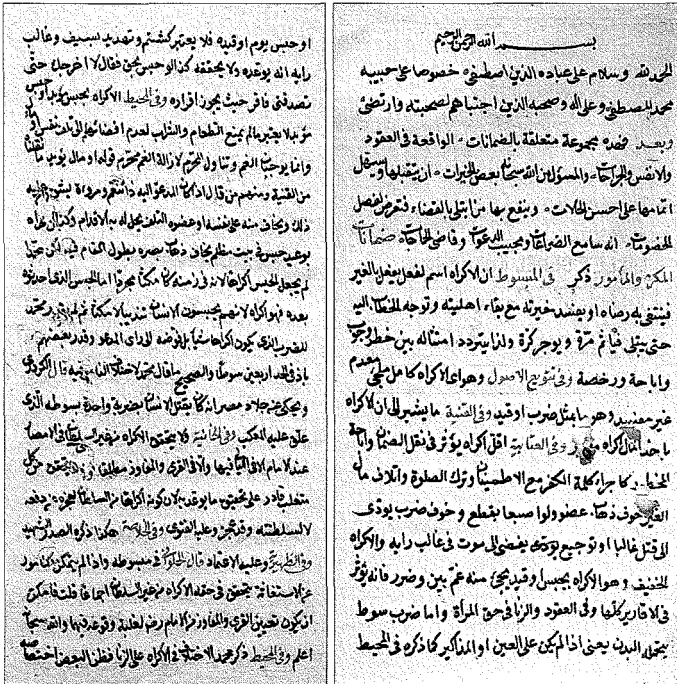 بسم الله الرحمن الرحيم
الحمد لله وسلام على عباده الذين اصطفى خصوصا على حبيبه
محمد المصطفى وعلى اله وصحبه الذين اجتباهم لصحبته وارتضى
وبعد فهذه مجموعة متعلقة بالضمانات الواقعة في العقود
والانفس والجراحات والمسؤل من الله سبحانه بعض الخيرات ان يتقبلها ويسهل
اتمامها على احسن الحالات وينفع بها من ابتلى بالقضاء فتعرض لفصل
الخصومات انه سامع الضراعات ومجيب الدعوات وقاضي الحاجات ضمانات
المكره والمأمور ذكر في المبسوط ان الاكراه اسم لفعل يفعل بالغير
فينتفي به رضاه او يفسد خيرته مع بقاء اهليته وتوجه الخطاب اليه
حتى يبتلى فيأثم مرة ويوجر كرة ولذا يتردد امتثاله بين خطر ووجوب
واباحة ورخصة وفي الاصول وهو اي الاكراه كامل ملجئ
غير مفسد وهو ما يمثل ضرب او قيد وفي القنية ما يشير الى ان الاكراه
باخذ المال اكراه وفي اقل اكراه يؤثر في نقل الضمان واباحة
كاجراء كلمة الكفر مع الاطمينان وترك الصلوة واتلاف مال
الغير خوف ذهاب عضو ولو اصبعا بقطع وخوف ضرب يودى
الى قتل غالبا او توجيع يفضى الى موت في غالب رايه والاكراه
الخفيف وهو الاكراه بحبس او قيد يجئ منه غم بين وضرر فانه يؤثر
في الاقارير كلها وفي العقود والزنا في حق المرأة واما ضرب سوط
يتحمله البدن يعنى اذا لم يكن على العين او المذاكير كما ذكره في المحيط
او حبس يوم او قيده فلا يعتبر كشتم وتهديد بسيف وغالب
رايه انه يوقعه ولا يحققه كذا لو حبس بحق فقال لا اخرجك حتى
تصدقني فاقر حيث يجوز اقراره وفي المحيط الاكراه بحبس
مؤبد لا يعتبر مالم يمنع الطعام والشراب لعدم افضائهما الى تلف نفس او
وانما يوجبان الغم وتناول المحرم لازالة الغم محرم
من القنية ومنهم من قال اذا كان المدعو اليه ذا نعم ومروة يشق عليه
ذلك ويخاف منه على نفسه او عضوه التلف يحل له الاقدام وكذا ان راه
يوعد حبس في بيت مظلم يخاف ذهاب بصره بطول المقام فيه
لم يجعل الحبس اكراها لانه في زمنه كان مكثا مجردا اما الحبس الذي احدثوه
بعده فهو اكراه لانهم يحبسون الانسان تعذيبا لا مكثا ثم لم محمد
للضرب الذي يكون اكراها شيأ بل فوضه الى راى وقدر بعضهم
بادنى الحد اربعين سوطا والصحيح ما قال محمد لاختلاف الناس فيه قال الكردري
ويحكى عن جلاد مصر انه كان يقتل الانسان بضربة واحدة بسوطه الذي
علق عليه وفي الخانية ولا يتحقق الاكراه من غير السلطان في الامصار
عند الامام الا في اليه فيها والا في القرى والمفاوز مطلقا يتحقق من كل
متغلب قادر على تحقيق ما يوعد به لان كونه اكراها من السلطان لعجزه
لا لسلطنته وقد عجز وعليه الفتوى وفي الخلاصة هكذا ذكره الصدر الشهيد
وفي الظهيرية وعليه الاعتماد قال الحلواني في مبسوطه واذا لم يتمكن المأمور
عن الاستغاثة يتحقق في حقه الاكراه من غير السلطان ايضا قلت فامكن
ان يكون تعيين القرى والمفاوز من الامام رضه لغلبة وقوعه فيها والله سبحانه
اعلم وفي المحيط ذكر محمد الاختلاف في الاكراه على الزنا فظن البعض اختصاصه